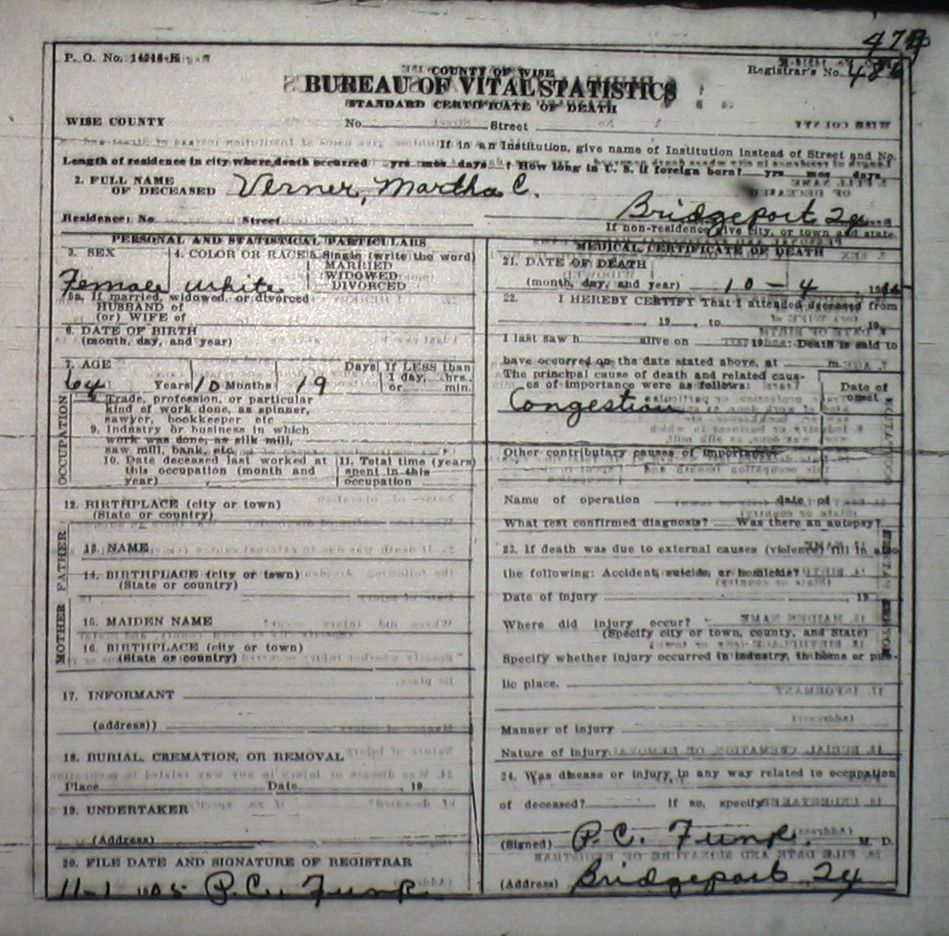 479
P. O. No. 14246-K
Registrar's No. 486
COUNTY OF WISE
BUREAU OF VITAL STATISTICS
STANDARD CERTIFICATE OF DEATH
WISE COUNTY No. Street
If in an Institution, give name of Institution instead of Street and No.
Length of residence in city where death occurred yrs mos days ? How long in U. S. if foreign born? yrs mos days
2. FULL NAME
OF DECEASED Verner, Martha C.
Residence: No Street Bridgeport
If non-residence give city, or town and state
PERSONAL AND STATISTICAL PARTICULARS
3. SEX 4. COLOR OR RACE 5. Single (write the word)
MARRIED
WIDOWED
DIVORCED
Female White
5a. If married, widowed, or divorced
HUSBAND of
(or) WIFE of
6. DATE OF BIRTH
(month, day, and year)
7. AGE Days If LESS than
1 day, hrs.
64 Years 10 Months 19 or min.
OCCUPATION
8. Trade, profession, or particular
kind of work done, as spinner,
sawyer, bookkeeper etc
9. Industry or business in which
work was done, as silk mill,
saw mill, bank, etc.
10. Date deceased last worked at
this occupation (month and
year)
11. Total time (years)
spent in this
occupation
12. BIRTHPLACE (city or town)
(State or country)
FATHER
13. NAME
14. BIRTHPLACE (city or town)
(State or country)
MOTHER
15. MAIDEN NAME
16. BIRTHPLACE (city or town)
(State or country)
17. INFORMANT
(address))
18. BURIAL, CREMATION, OR REMOVAL
Place Date , 19
19. UNDERTAKER
(Address)
20. FILE DATE AND SIGNATURE OF REGISTRAR
11-1 P. C. Funk
MEDICAL CERTIFICATE OF DEATH
21. DATE OF DEATH
(month, day, and year) 10-4
22. I HEREBY CERTIFY That I attended deceased from
, 19 , to , 19
I last saw h alive on 19 : Death is said to
have occurred on the date stated above, at m.
The principal cause of death and related caus-
es of importance were as follows:
Date of
onset
Congestion
Other contributary causes of importance
Name of operation date of
What test confirmed diagnosis? Was there an autopsy?
23. If death was due to external causes (violence) fill in also
the following: Accident, suicide, or homicide?
Date of injury , 19
Where did injury occur?
(Specify city or town, county, and State)
Specify whether injury occurred in industry, in home or pub-
lic place.
Manner of injury
Nature of injury
24. Was disease or injury in any way related to occupation
of deceased? If so, specify
(Signed) P. C. Funk, M. D.
(Address) Bridgeport